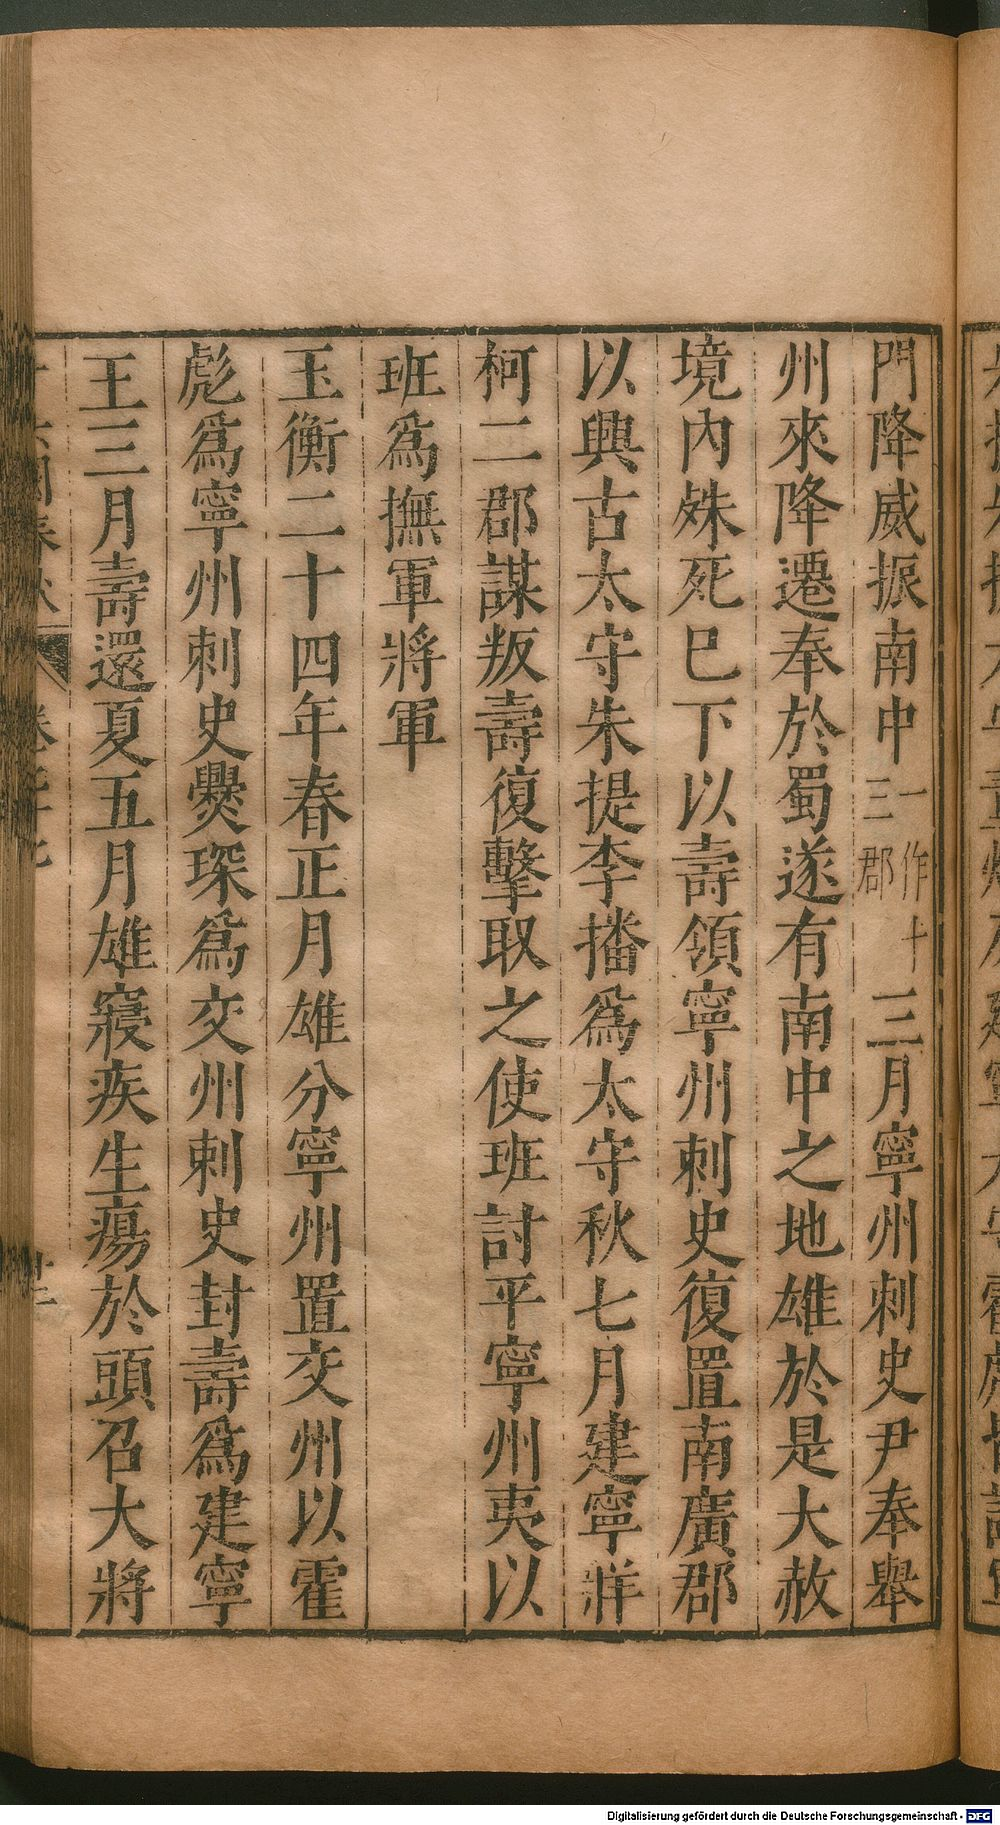 門降威振南中一作十三郡三月寧州刺史尹奉舉
州來降遷奉於蜀遂有南中之地雄於是大赦
境內殊死巳下以壽領寧州刺史復置南廣郡
以興古太守朱提李播為太守秋七月建寧牂
柯二郡謀叛壽復擊取之使班討平寧州夷以
班為撫軍將軍
玉衡二十四年春正月雄分寧州置交州以霍
彪為寧州刺史爨琛為交州刺史封壽為建寧
王三月壽還夏五月雄寢疾生瘍於頭召大將
Digitalisierung gefördert durch die Deutsche Forschungsgemeinschaft - DFG